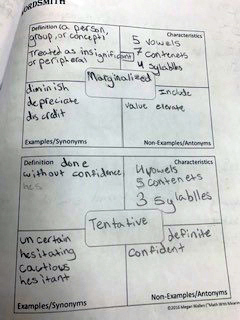 ORDSMITH
Definition (a person,
group, or concept)
Treated as insignificant
or peripheral
Characteristics
5 vowels
7 contenets
4 sylables
Marginalized
diminish
depreciate
discredit
Examples/Synonyms
Include
value elevate
Non-Examples/Antonyms
Definition done
without confidence
hes
Characteristics
4 vowels
5 contenets
3 sylablles
Tentative
uncertain
hesitating
cautious
hesitant
Examples/Synonyms
definite
confident
Non-Examples/Antonyms
©2016 Megan Wallen ("Math With Meaning